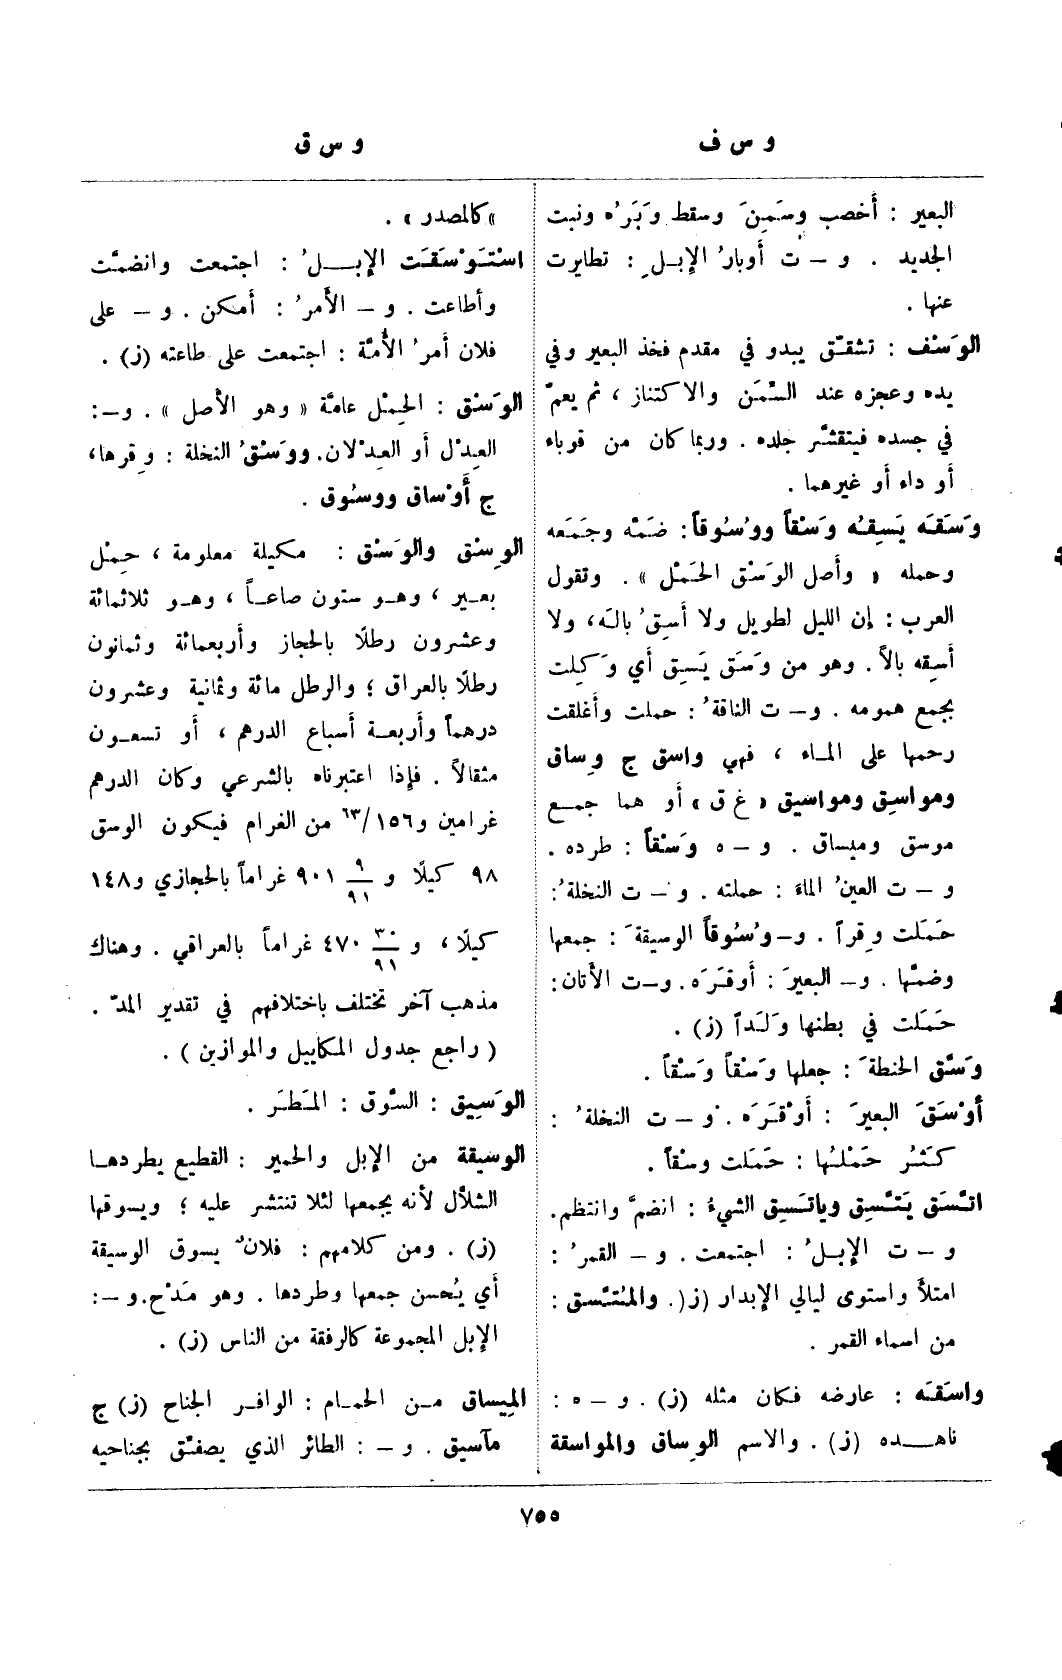 و س ف
و س ق
البعير : أخصب وسَمِنَ وسقط وَبَرُه ونبت
الجديد . و – ت أوبارُ الإبلِ : تطايرت
عنها .
الوَسْف : تشقّق يبدو في مقدم فخذ البعير وفي
يده وعجزه عند السِّمَن والاكتناز ، ثم يعمّ
في جسده فيتقشّر جلده . وربما كان من قوباء
أو داء أو غيرهما .
وَسَقَه يَسِقُه وَسْقاً ووُسُوقاً : ضَمّه وجَمَعه
وحمله « وأصل الوَسْق الحَمْل » . وتقول
العرب : إن الليل لطويل ولا أسِقُ بالَه ، ولا
أسِقه بالاً . وهو من وَسَق يَسِق أي وَكِلت
بجمع همومه . و – ت الناقةُ : حملت وأغلقت
رحمها على الماء ، فهي واسق ج وِساق
ومواسِق ومواسيق « غ ق » أو هما جمع
موسق وميساق . و – ه وَسْقاً : طرده .
و – ت العينُ الماءَ : حملته . و – ت النخلةُ :
حَمَلت وِقراً . و– وُسُوقاً الوسيقةَ : جمعها
وضمّها . و– البعيرَ : أوقَرَه . و–ت الأتان :
حَمَلت في بطنها وَلَداً (ز) .
وَسَّق الحنطةَ : جعلها وَسْقاً وَسْقاً .
أوْسَقَ البعيرَ : أوْقَرَه . و – ت النخلةُ :
كَثُر حَمْلُها : حَمَلت وسْقاً .
اتَّسَق يَتَّسِق وياتَسِق الشيءُ : انضمَّ وانتظم .
و – ت الإبلُ : اجتمعت . و – القمرُ :
امتلأ واستوى ليالي الإبدار (ز). والمُتَّسق :
من اسماء القمر .
واسَقَه : عارضه فكان مثله (ز) . و – ه :
ناهـده (ز) . والاسم الوِساق والمواسقة
« كالمصدر » .
اسْتَوْسَقَت الإبلُ : اجتمعت وانضمَّت
وأطاعت . و – الأمرُ : أمكن . و – على
فلان أمرُ الأمّة : اجتمعت على طاعته (ز) .
الوَسْق : الحِمْل عامَّة « وهو الأصل » . و–:
العِدْل أو العِدْلان. ووَسْقُ النخلة : وِقرها،
ج أوْساق ووسُوق .
الوِسْق والوَسْق : مكيلة معلومة ، حِمْل
بعير ، وهو ستون صاعاً ، وهو ثلاثمائة
وعشرون رطلًا بالحجاز وأربعمائة وثمانون
رطلًا بالعراق ؛ والرطل مائة وثمانية وعشرون
درهماً وأربعة أسباع الدرهم ، أو تسعون
مثقالاً . فإذا اعتبرناه بالشرعي وكان الدرهم
غرامين و٦٣/١٥٦ من الغرام فيكون الوسق
٩٨ كيلًا و ٩/٩١ ٩٠١ غراماً بالحجازي و١٤٨
كيلًا ، و ٣٠/٩١ ٤٧٠ غراماً بالعراقي . وهناك
مذهب آخر تختلف باختلافهم في تقدير المدّ .
( راجع جدول المكاييل والموازين ) .
الوَسِيق : السَّوق : المَطَر .
الوسيقة من الإبل والحمير : القطيع يطردها
الشلّال لأنه يجمعها لئلا تنتشر عليه ؛ ويسوقها
(ز) . ومن كلامهم : فلانٌ يسوق الوسيقة
أي يُحسن جمعها وطردها . وهو مَدْح . و–:
الإبل المجموعة كالرفقة من الناس (ز) .
المِيساق من الحمام : الوافر الجناح (ز) ج
مآسيق . و – : الطائر الذي يصفّق بجناحيه
٧٥٥